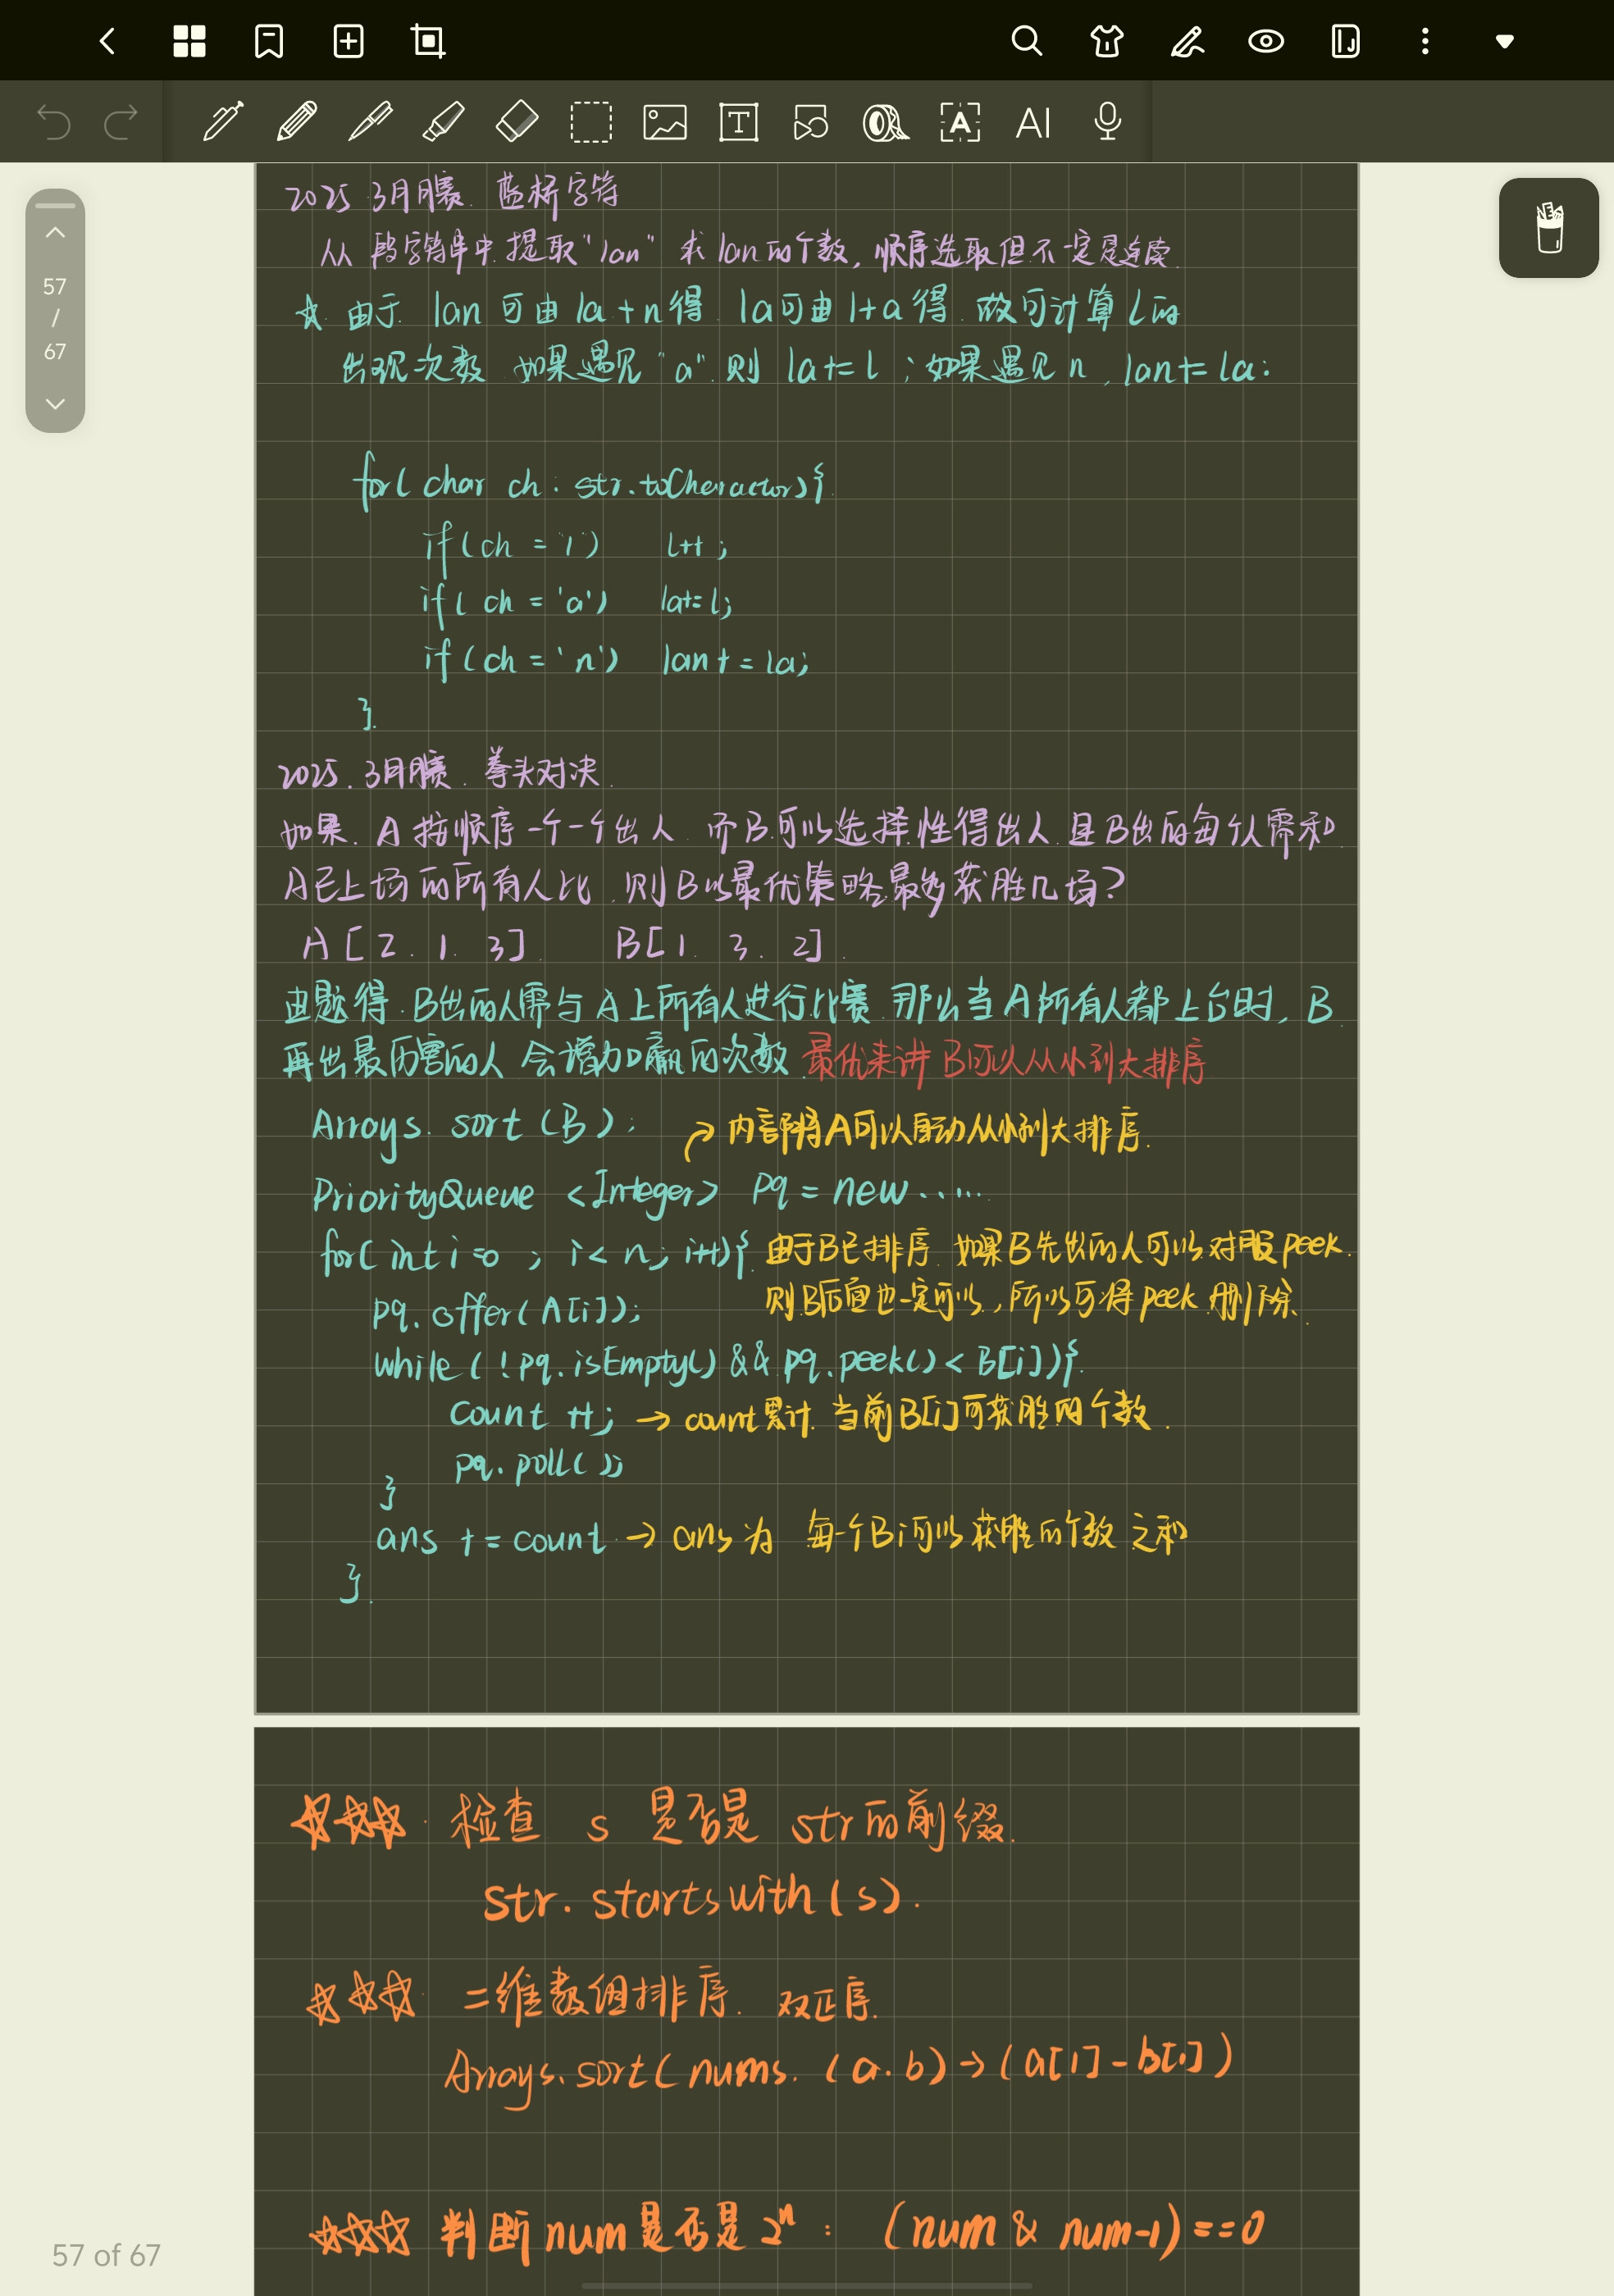 57
/
67
AI
2025 3月月赛. 蓝桥字符
从 段字符串中.提取"lan" 求 lan的个数, 顺序选取但不一定是连续.
☆ 由于 lan 可由 la + n得. la可由 l+a 得. 故可计算 l 的
出现次数. 如果遇见 "a". 则 la += l ; 如果遇见 n, lan += la;
for( char ch : str.toCheractor){
if(ch = 'l') l++;
if( ch = 'a') la+= l;
if (ch = 'n') lan += la;
}.
2025.3月月赛. 拳头对决.
如果. A 按顺序一个一个出人. 而B可以选择性得出人.且B出的每个人需和.
A已上场的所有人比, 则B以最优策略最多获胜几场?
A [ 2. 1. 3]. B[1. 3. 2].
由题得.B出的人需与A上所有人进行比赛.那么当A所有人都上台时, B.
再出最历害的人 会增加赢的次数.最优来讲B可以从小到大排序
Arrays. sort (B);
内部将A可以自动从小到大排序.
PriorityQueue <Integer> pq = new ......
for( int i =0 ; i < n; i++){ 由于B已排序.如果B先出的人可以对服peek.
pq. offer( A[i]); 则B后面也一定可以,所以可将peek删除.
while ( ! pq. isEmpty() && pq. peek() < B[i]){.
Count ++; → count累计.当前B[i]可获胜的个数.
pq. poll();
}
ans += count → ans为 每一个Bi可以获胜的个数之和
}.
☆☆☆. 检查 s 是否是 str的前缀.
Str. starts with ( s ).
☆☆☆. 二维数组排序. 双正序.
Arrays. sort( nums. (a. b) → (a[1] - b[1])
☆☆☆ 判断 num是否是 2ⁿ : (num & num-1) ==0
57 of 67